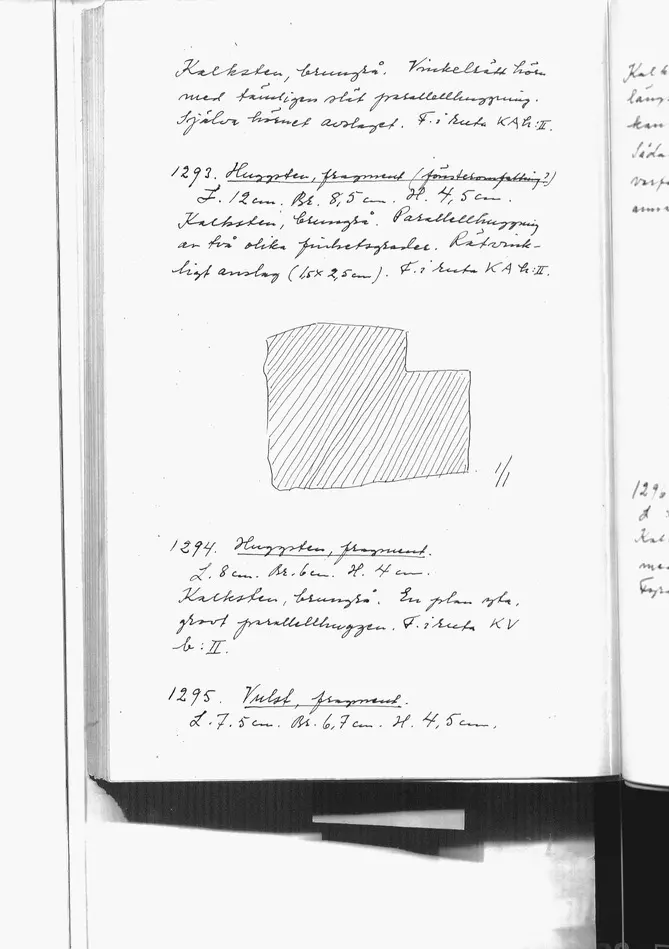 Kalksten, brungrå. Vinkelrätt hörn
med tämligen slät parallellhuggning.
Själva hörnet avslaget. F. i ruta KA h:II.
1293. Huggsten, fragment (fönsteromfattning?)
L. 12 cm. Br. 8,5 cm. H. 4,5 cm.
Kalksten, brungrå. Parallellhuggning
av två olika finhetsgrader. Rätvink-
ligt anslag (1,5 x 2,5 cm). F. i ruta KA h:II.
1/1
1294. Huggsten, fragment.
L. 8 cm. Br. 6 cm. H. 4 cm.
Kalksten, brungrå. En plan yta,
grovt parallellhuggen. F. i ruta KV
b:II.
1295. Vulst, fragment.
L. 7,5 cm. Br. 6,7 cm. H. 4,5 cm.